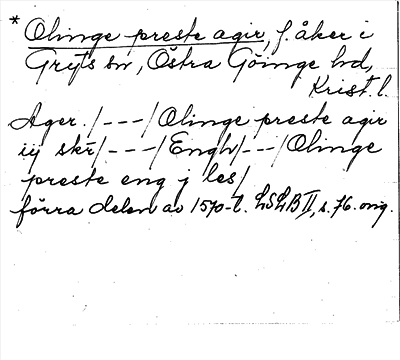 * Olinge preste agir, f. åker i
Gryts sn, Östra Göinge hd,
Krist. l.
Ager. /---/ Olinge preste agir
iij skr̄ /---/ Engh /---/ Olinge
preste eng j les /
förra delen av 1570-t. LSLB II, s. 76. orig.